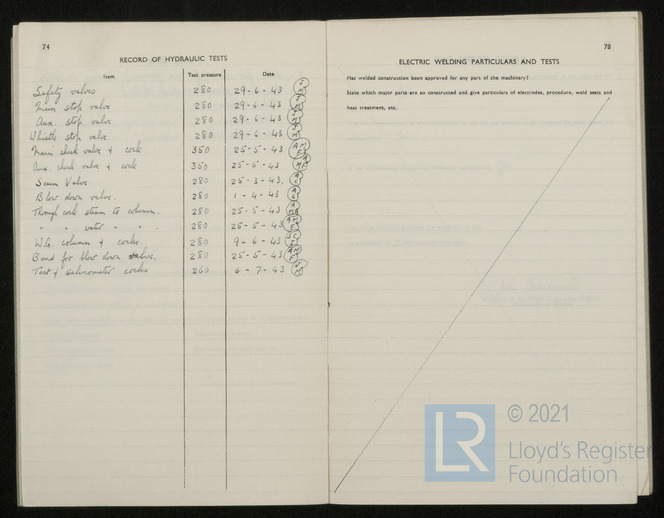 74
RECORD OF HYDRAULIC TESTS
Item Test pressure Date
Safety valves 280 29-6-43
Main stop valve 280 29-6-43
Aux. stop valve 280 29-6-43
Whistle stop valve 280 29-6-43
Main check valve & cock 350 25-5-43
Aux. check valve & cock 350 25-5-43
Scum Valve 280 25-3-43.
Blow down valve. 280 1-4-43
Through cock steam to column. 280 25-5-43
" " water " " . 280 25-5-43
W.G. column & cocks. 280 9-6-43
Bend for blow down valve. 280 25-5-43
Test & salinometer cocks 260 6-7-43
78
ELECTRIC WELDING PARTICULARS AND TESTS
Has welded construction been approved for any part of the machinery?
State which major parts are so constructed and give particulars of electrodes, procedure, weld tests and
heat treatment, etc.
LR
© 2021
Lloyd's Register
Foundation